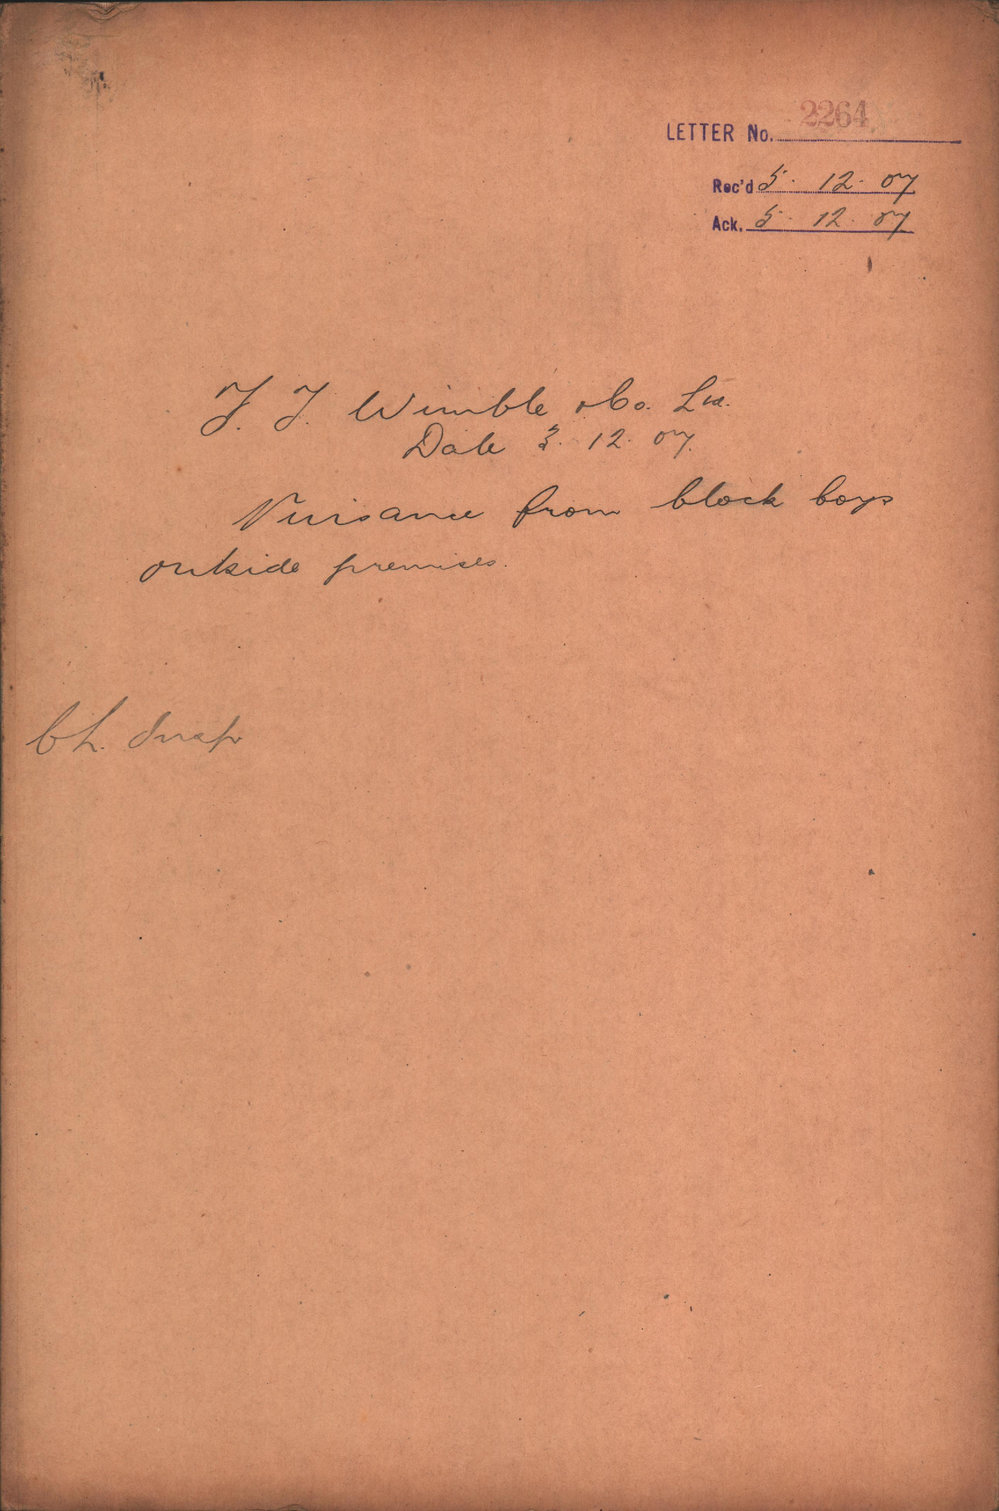 LETTER No. 2264
Rec'd 5. 12. 07
Ack. 5. 12. 07
F. T. Wimble & Co. Ltd.
Date 3. 12. 07.
Nuisance from block boys
outside premises.
Ch. Insp